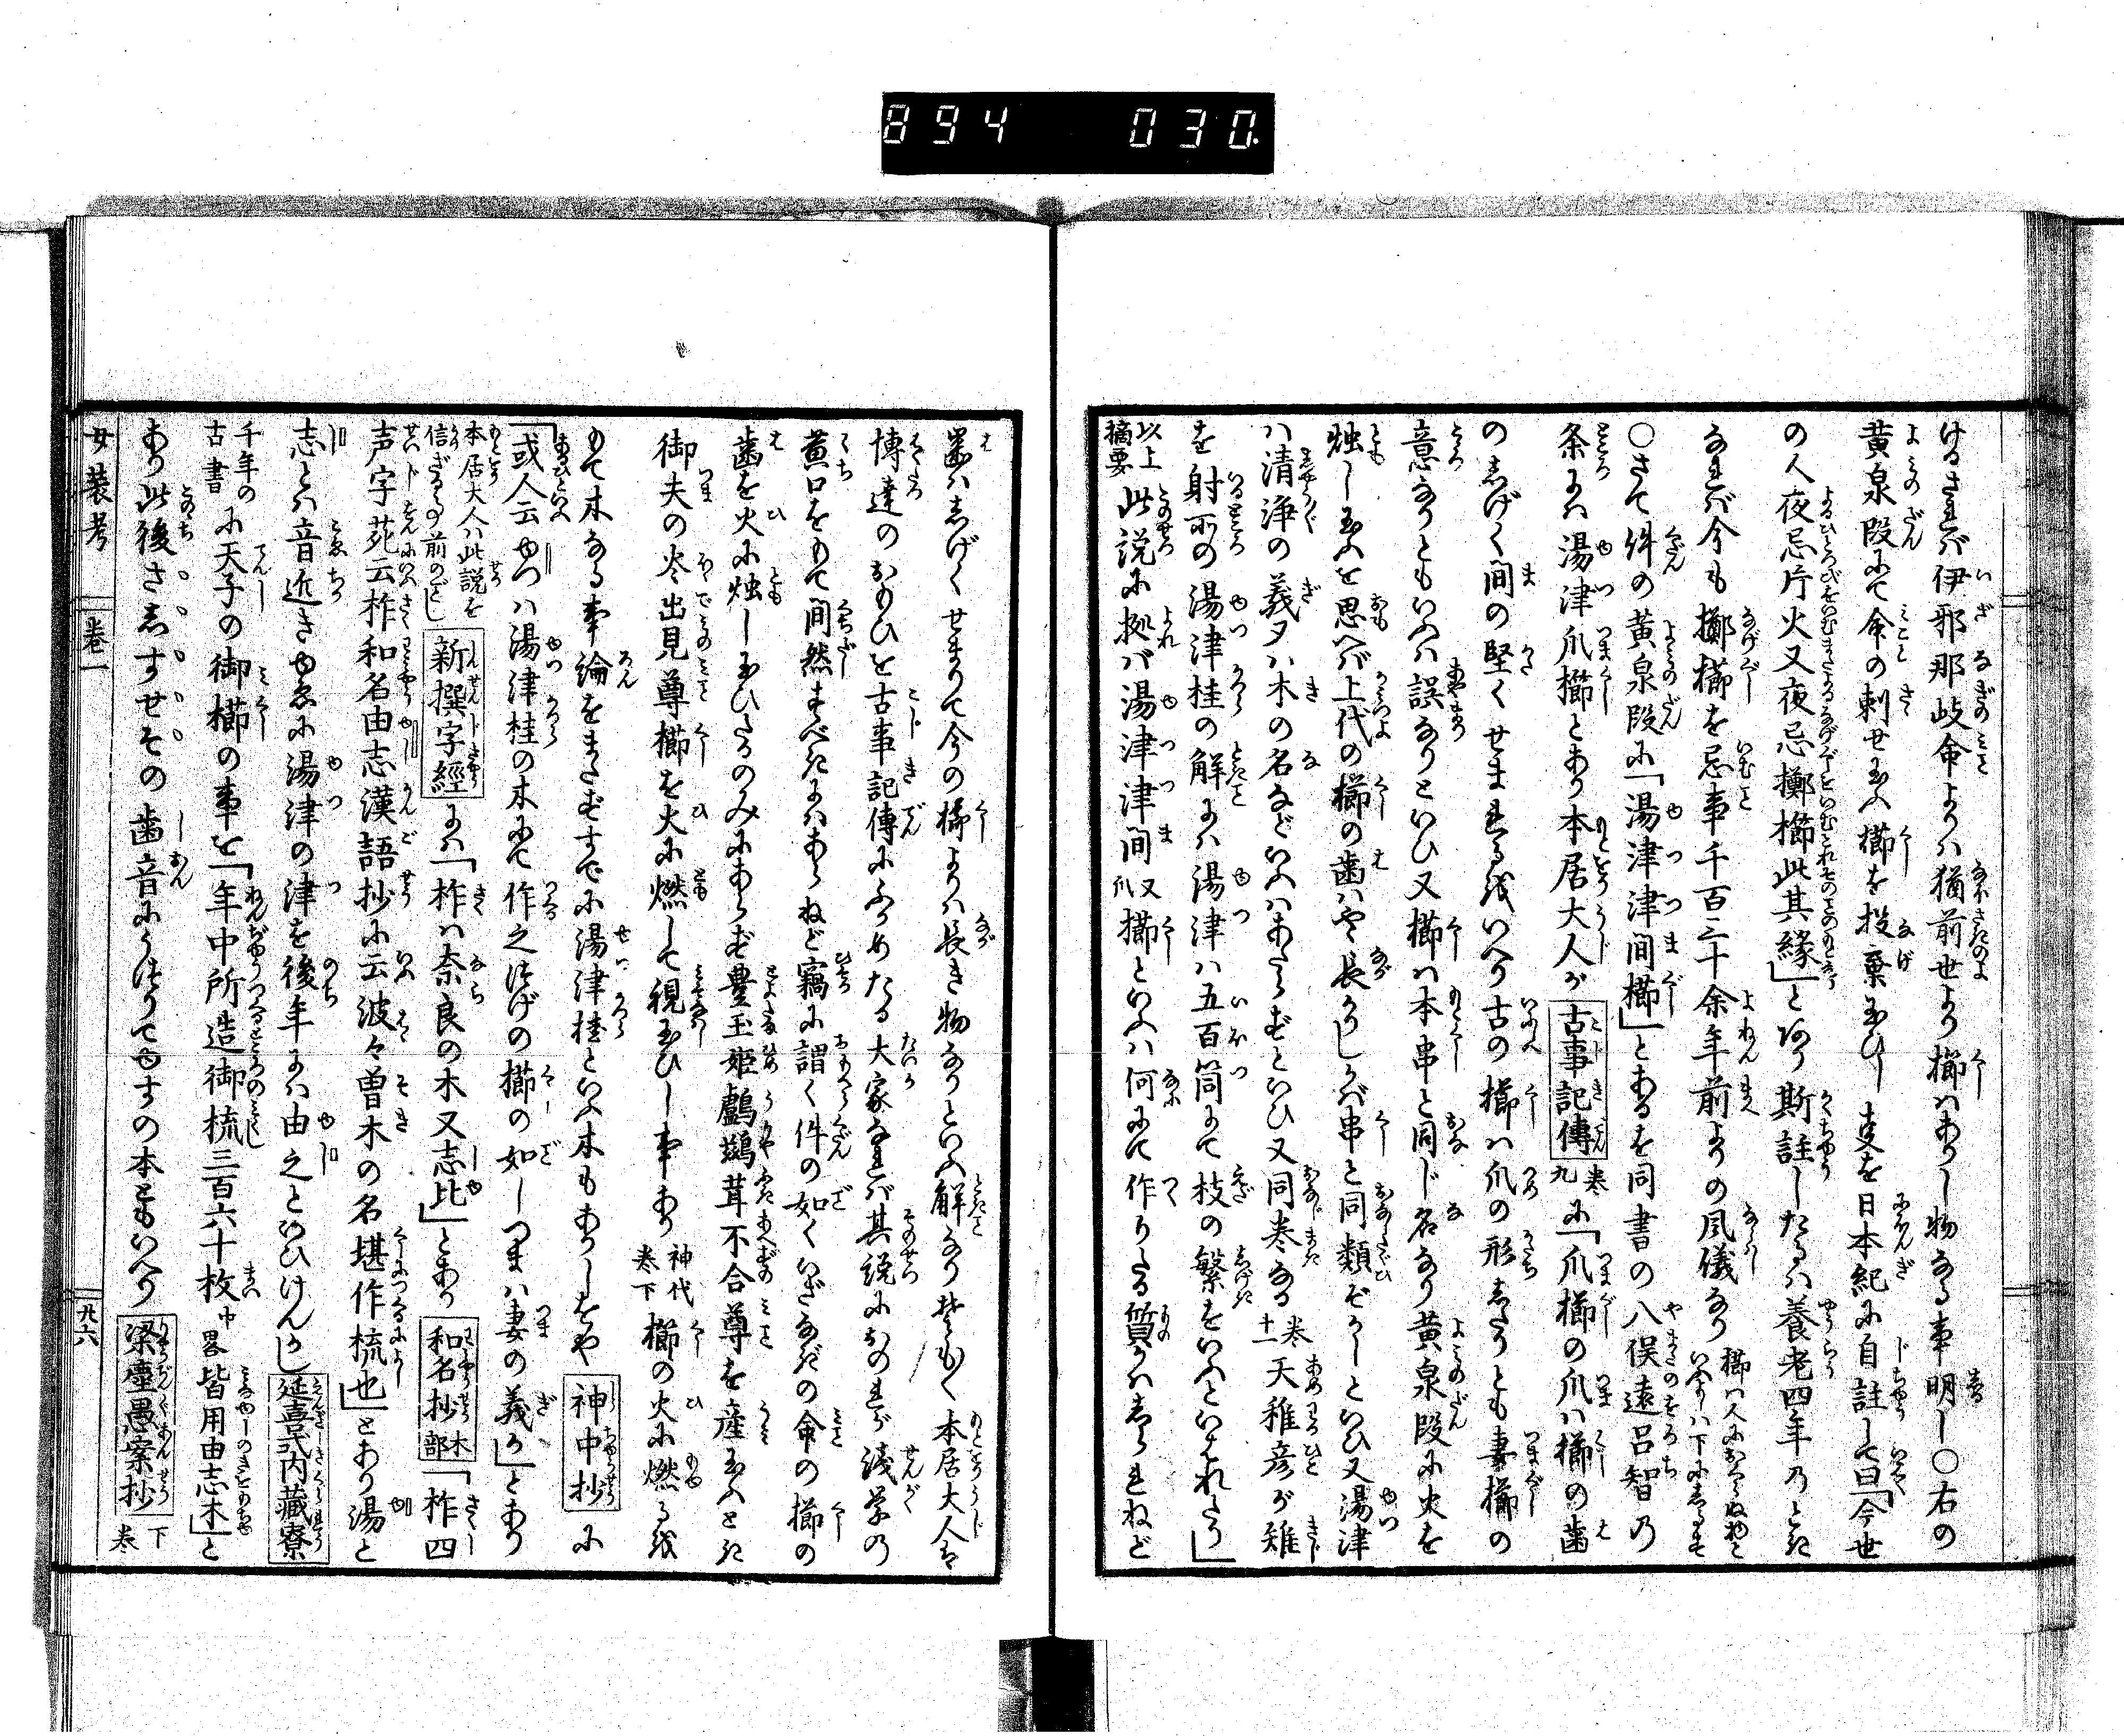 894 030.
けるされば伊邪那岐命よりハ猶前世より櫛ハありし物なる事明し○右の
黄泉段にて命の刺せ玉ふ櫛を投棄玉ひし事を日本紀に自註して曰「今世
の人夜忌片火又夜忌擲櫛此其縁」とあり斯註したるハ養老四年のとき
なれば今も擲櫛を忌事千百三十余年前よりの風儀なり
○さて件の黄泉段に「湯津津間櫛」とあるを同書の八俣遠呂智の
条にハ湯津爪櫛とあり本居大人が古事記傳九巻に「爪櫛の爪ハ櫛の歯
のしげく間の堅くせまれるをいへり古の櫛ハ爪の形したりとも妻櫛の
意なりともいふハ誤なりといひ又櫛ハ本串と同じ名なり黄泉段に火を
燭し玉ふを思へバ上代の櫛の歯ハやゝ長かりしかバ串と同類ぞかしといひ又湯津
ハ清浄の義又ハ木の名などいふハあたらずといひ又同巻なる十一巻天稚彦が雉
を射所の湯津桂の解にハ湯津ハ五百箇にて枝の繁をいふといはれたり」
以上摘要此説に拠バ湯津津間又爪櫛といふハ何にて作りたる質かハしられねど
歯ハしげくせまりて今の櫛よりハ長き物なりといふ解なりそも〳〵本居大人ハ
博達のおもひを古事記傳にふかめたる大家なれバ其説におのれが浅学の
黄口をもて間然すべきにハあらねど竊に謂く件の如くいざなぎの命の櫛の
歯を火に燭し玉ひたるのみにあらず豊玉姫鸕鷀茸不合尊を産玉ふとき
御夫の火々出見尊櫛を火に燃して視玉ひし事あり神代巻下櫛の火に燃るを
もて木なる事論をまたずすでに湯津桂といふ木もありしをや神中抄に
「或人云ゆつハ湯津桂の木にて作之つげの櫛の如しつまハ妻の義か」とあり
本居大人ハ此説を信ざる事前のごとし新撰字經にハ「柞ハ奈良の木又志比」とあり和名抄木部「柞四
声字苑云柞和名由志漢語抄に云波々曽木の名堪作梳也」とあり湯と
志とハ音近きゆゑに湯津の津を後年にハ由之といひけんかし延喜式内藏寮
千年の古書に天子の御櫛の事を「年中所造御梳三百六十枚中畧皆用由志木」と
あり此後さしすせその歯音にうつりてゆすの木ともいへり梁塵愚案抄下巻
女装考 巻一 九六